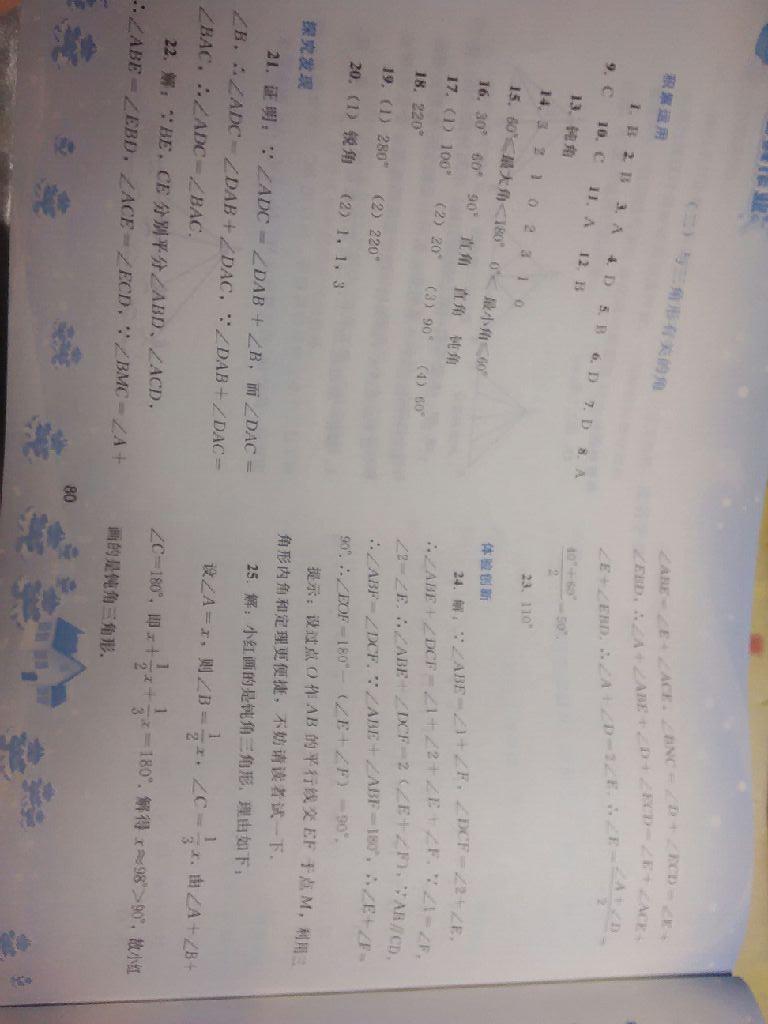 （二）与三角形有关的角
积累运用
1. B 2. B 3. A 4. D 5. B 6. D 7. D 8. A
9. C 10. C 11. A 12. B
13. 钝角
14. 3 2 1 0 2 3 1 0
15. 60°≤最大角<180° 0°<最小角≤60°
16. 30° 60° 90° 直角 直角 钝角
17.（1）100° （2）20° （3）90° （4）60°
18. 220°
19.（1）280° （2）220°
20.（1）锐角 （2）1，1，3
探究发现
21. 证明：∵∠ADC=∠DAB+∠B，而∠DAC=
∠B，∴∠ADC=∠DAB+∠DAC，∵∠DAB+∠DAC=
∠BAC，∴∠ADC=∠BAC.
22. 解：∵BE、CE分别平分∠ABD、∠ACD，
∴∠ABE=∠EBD，∠ACE=∠ECD，∵∠BMC=∠A+
∠ABE=∠E+∠ACE，∠BNC=∠D+∠ECD=∠E+
∠EBD，∴∠A+∠ABE+∠D+∠ECD=∠E+∠ACE+
∠E+∠EBD，∴∠A+∠D=2∠E，∴∠E=(∠A+∠D)/2=
(40°+60°)/2=50°.
23. 110°
体验创新
24. 解：∵∠ABE=∠1+∠F，∠DCF=∠2+∠E，
∴∠ABE+∠DCF=∠1+∠2+∠E+∠F，∵∠1=∠F，
∠2=∠E，∴∠ABE+∠DCF=2（∠E+∠F），∵AB∥CD，
∴∠ABF=∠DCF，∵∠ABE+∠ABF=180°，∴∠E+∠F=
90°，∴∠EOF=180°-（∠E+∠F）=90°.
提示：设过点O作AB的平行线交EF于点M，利用三
角形内角和定理更便捷，不妨请读者试一下.
25. 解：小红画的是钝角三角形. 理由如下：
设∠A=x，则∠B=1/2x，∠C=1/3x. 由∠A+∠B+
∠C=180°，即x+1/2x+1/3x=180°. 解得x≈98°>90°，故小红
画的是钝角三角形.
80